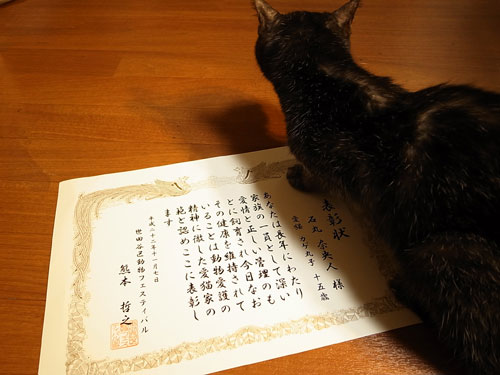 表彰状
石丸 奈央人 様
愛猫 カゲ丸子 十五歳
あなたは長年にわたり
家族の一員として深い
愛情と正しい管理のも
とに飼育され今日なお
その健康を維持されて
いることは動物愛護の
精神に徹した愛猫家の
範と認めここに表彰し
ます
平成二十二年十一月七日
世田谷区動物フェスティバル
熊本 哲之